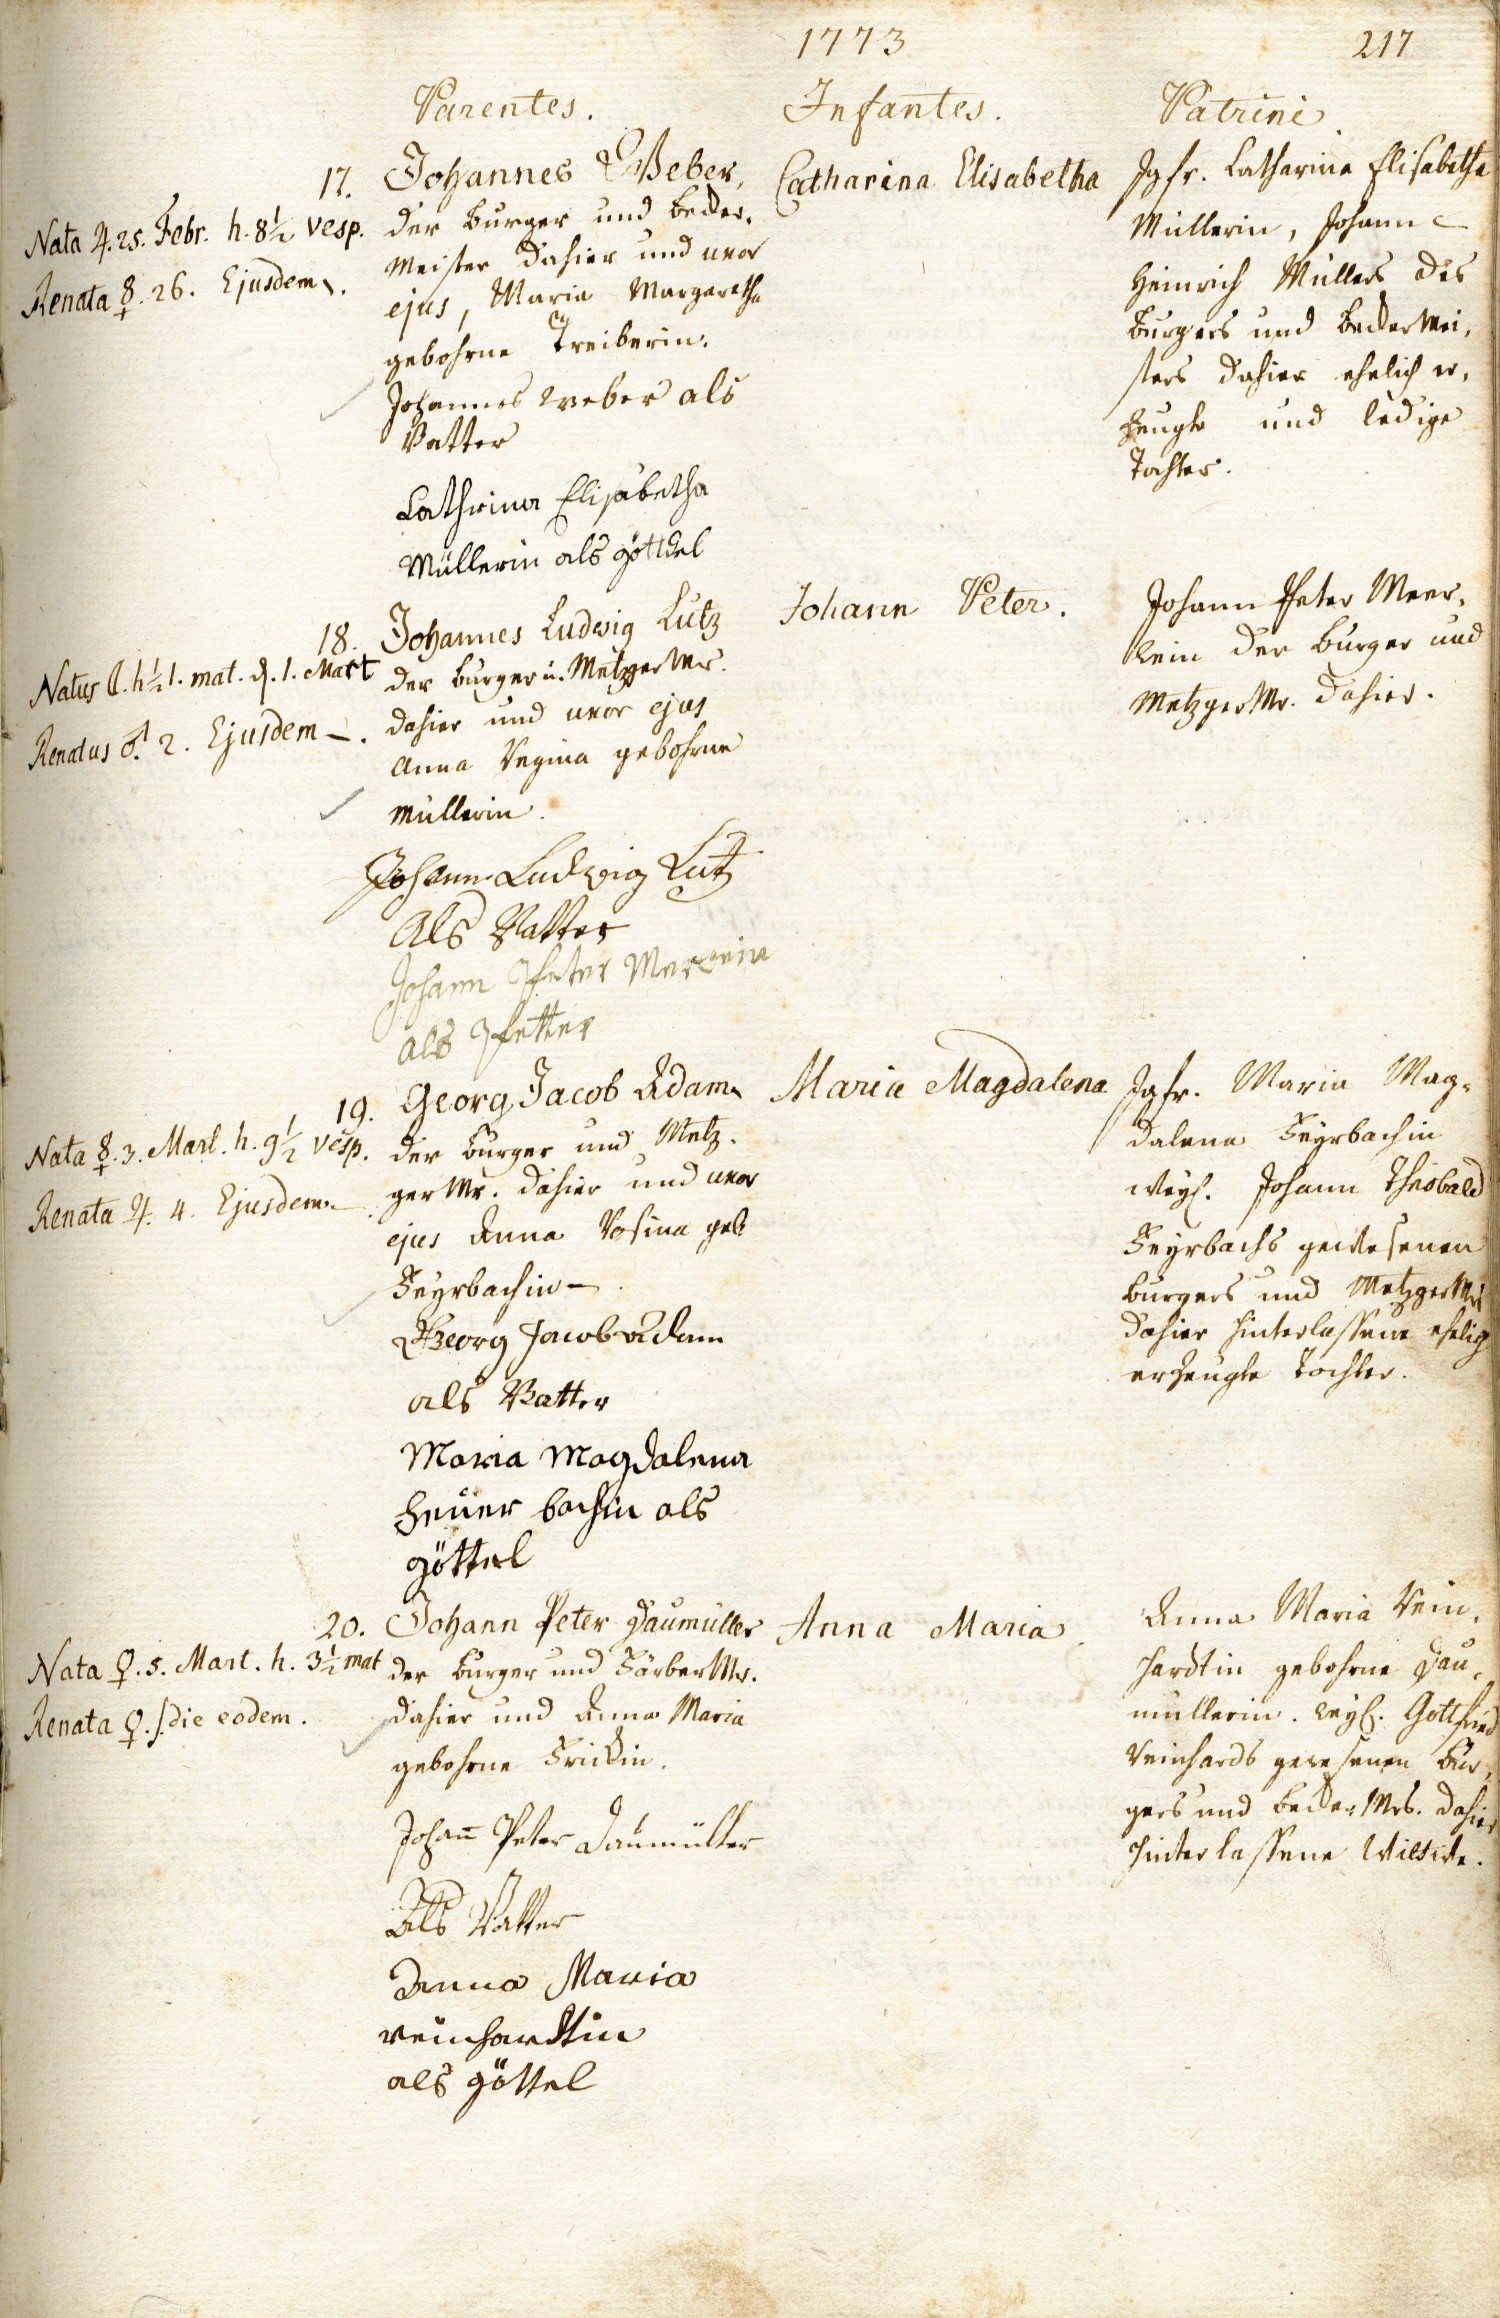 1773
217
Parentes.
Infantes.
Patrini
17.
Nata ♃. 25. Febr. h. 8½ vesp.
Renata ☿. 26. Ejusdem.
Johannes Weber,
der burger und becker-
meister dahier und uxor
ejus, Maria Margaretha
gebohrne Treiberin.
Johannes weber als
Vatter
Cathrina Elisabetha
Müllerin als göttel
Catharina Elisabetha
Jgfr. Catharina Elisabetha
Müllerin, Johann
Heinrich Müllers des
burgers und beckermei-
sters dahier ehelich er-
zeugte und ledige
Tochter.
18.
Natus h. ½ 1. mat. d. 1. Mart
Renatus ♂. 2. Ejusdem.
Johannes Ludwig Lutz
der burger u. Metzger Mr.
dahier und uxor ejus
Anna Regina gebohrne
müllerin.
Johann Ludwig Lutz
Als Vatter
Johann Peter Merlein
als Petter
Johann Peter.
Johann Peter Meer-
lein der burger und
Metzger Mr. dahier.
19.
Nata ☿. 3. Mart. h. 9½ vesp.
Renata ♃. 4. Ejusdem.
Georg Jacob Adam
der burger und Metz-
ger Mr. dahier und uxor
ejus Anna Rosina geb.
Feyrbachin
Georg Jacob Adam
als Vatter
Maria Magdalena
feuer bachin als
göttel
Maria Magdalena
Jgfr. Maria Mag-
dalena Feyrbachin
weyl. Johann Theobald
Feyrbachs gewesenen
burgers und Metzger Mrs
dahier hinterlassene ehelig
erzeugte Tochter.
20.
Nata ♀. 5. Mart. h. 3½ mat
Renata ♀. die eodem.
Johann Peter Daumüller
der burger und Färber Mr.
dahier und Anna Maria
gebohrne Frickin.
Johann Peter Daumüller
Als Vatter
Anna Maria
reinhardtin
als göttel
Anna Maria
Anna Maria Rein-
hardtin gebohrne Dau-
müllerin. weyl. Gottfried
Reinhards gewesenen bur-
gers und becker Mrs. dahier
hinterlassene Wittwe.